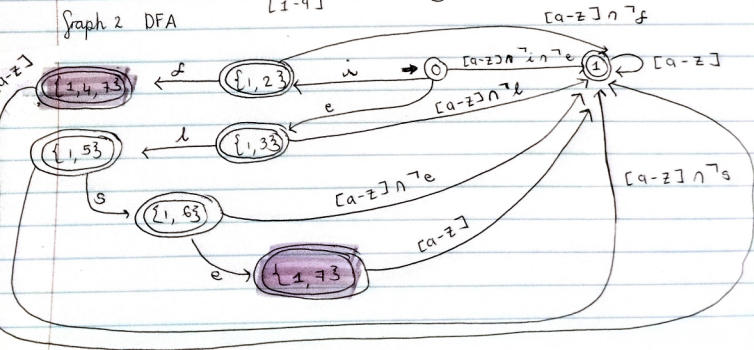 [1-9]
Graph 2 DFA
[a-z] ∩ ¬f
a-z]
{1,4,7}
f
{1,2}
i
0
[a-z] ∩ ¬i ∩ ¬e
1
[a-z]
e
[a-z] ∩ ¬l
{1,5}
l
{1,3}
s
{1,6}
[a-z] ∩ ¬e
[a-z] ∩ ¬s
e
{1,7}
[a-z]